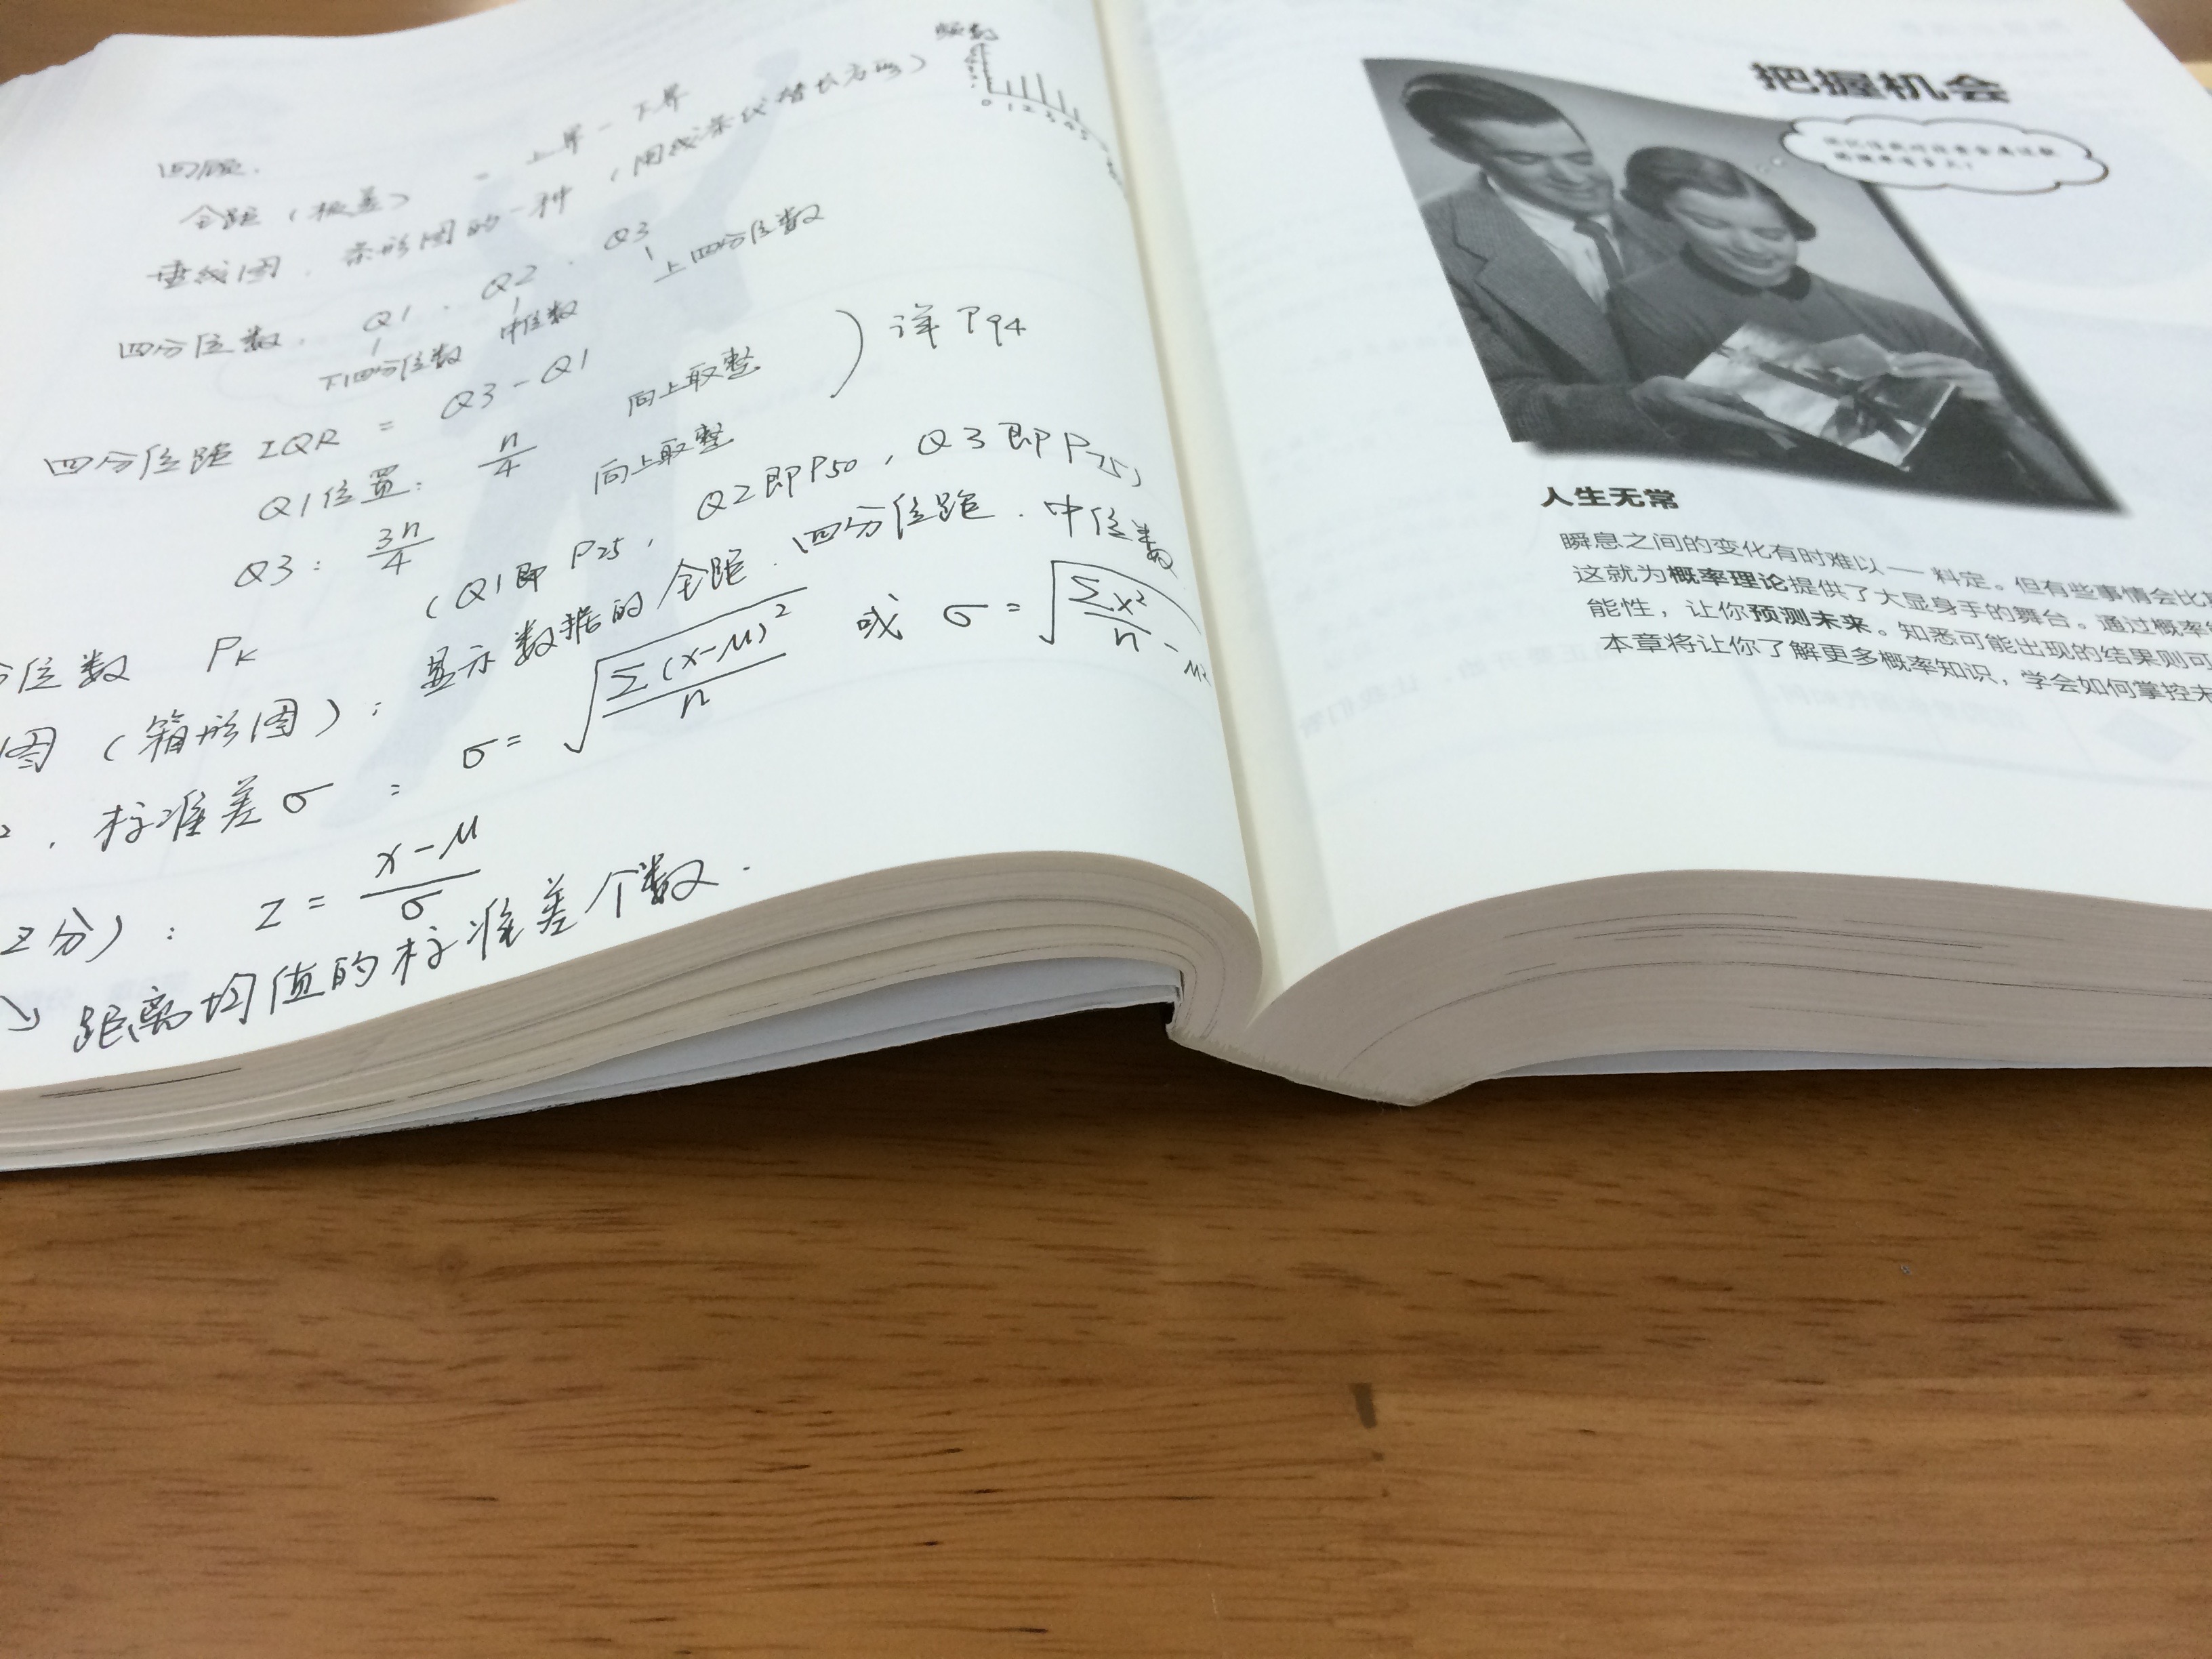 回顾.
全距(极差) = 上界 - 下界
垂线图. 条形图的一种 (用线条代替长方形)
频数
0 1 2 3 4 5
四分位数. Q1 . Q2 . Q3
下四分位数 中位数 上四分位数
四分位距 IQR = Q3 - Q1
Q1位置: n/4 向上取整
Q3: 3n/4 向上取整
) 详P94
分位数 PK (Q1即P25, Q2即P50, Q3即P75)
图(箱形图): 显示数据的全距.四分位距.中位数
², 标准差σ: σ= √(Σ(x-μ)²/n) 或 σ= √(Σx²/n - μ²
Z分): Z = (x-μ)/σ
↘ 距离均值的标准差个数.
把握机会
人生无常
瞬息之间的变化有时难以一一料定。但有些事情会比
这就为概率理论提供了大显身手的舞台。通过概率
能性，让你预测未来。知悉可能出现的结果则可
本章将让你了解更多概率知识，学会如何掌控未